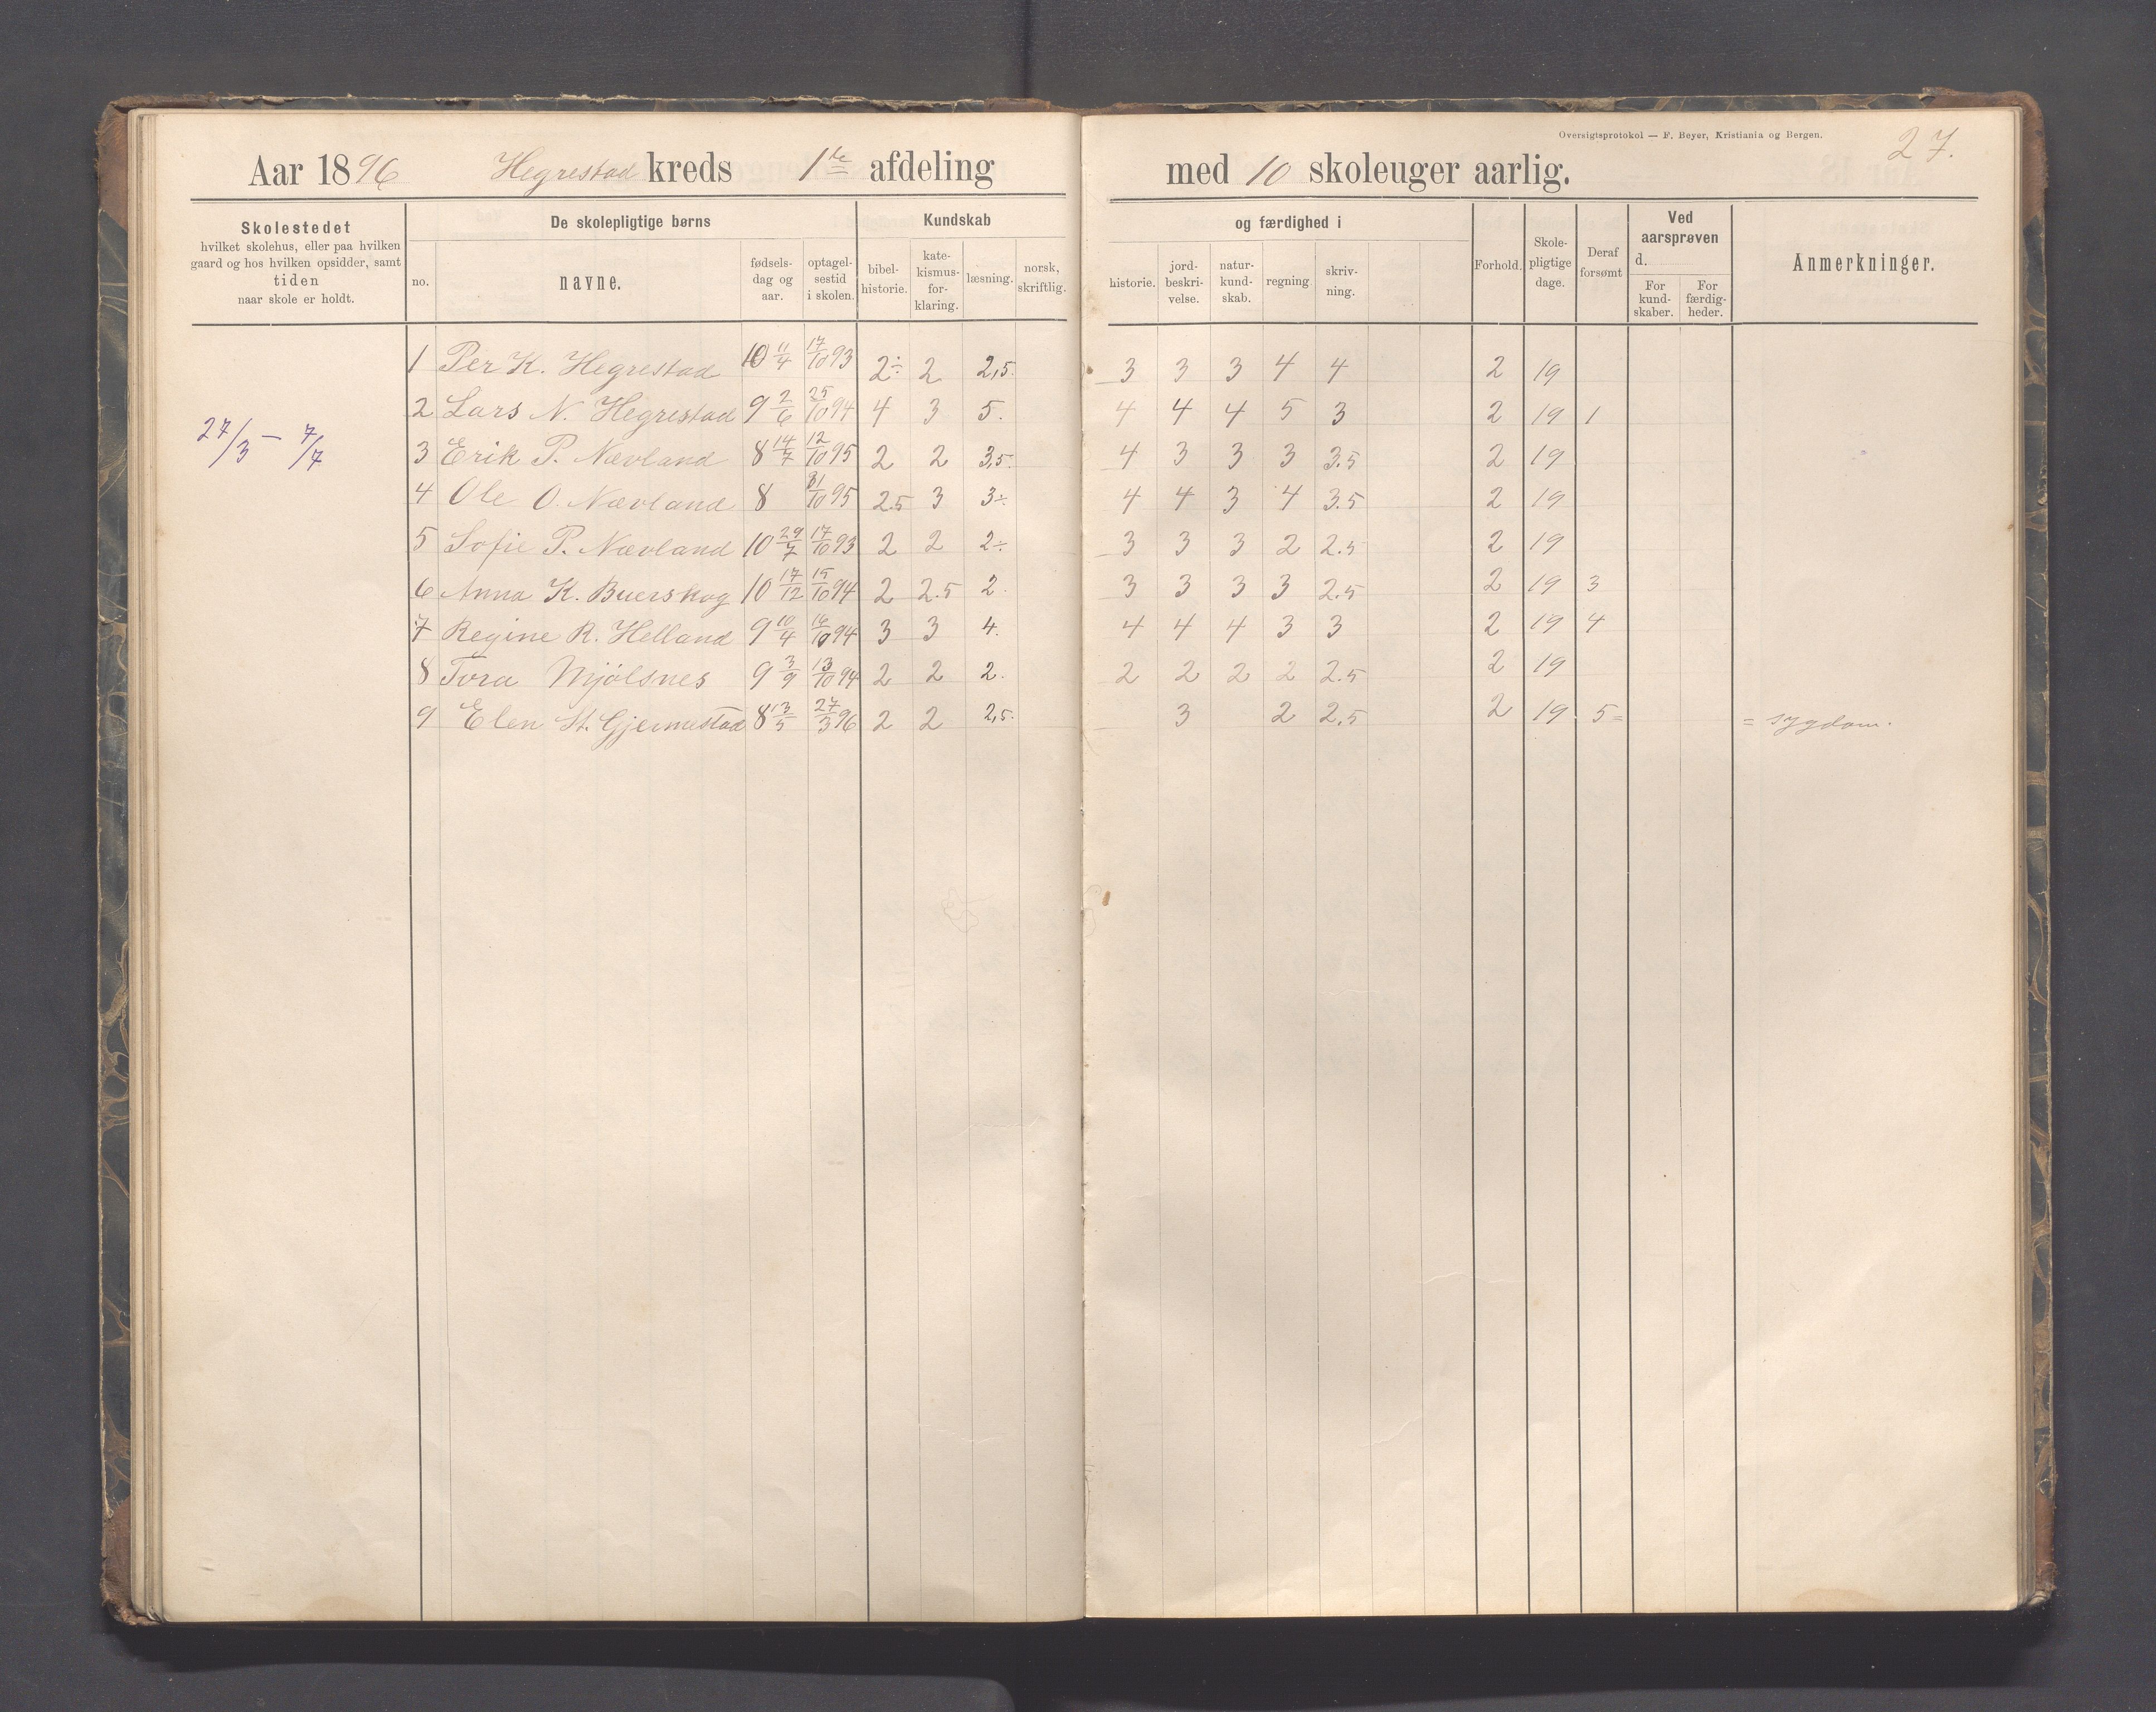 Oversigtsprotokol — F. Beyer, Kristiania og Bergen.
27.
Aar 1896 Hegrestad kreds 1ste afdeling med 10 skoleuger aarlig.
Skolestedet hvilket skolehus, eller paa hvilken gaard og hos hvilken opsidder, samt tiden naar skole er holdt.
De skolepligtige børns
no. navne. fødsels-dag og aar. optagel-sestid i skolen.
Kundskab og færdighed i
bibel-historie. kate-kismus-for-klaring. læsning. norsk, skriftlig. historie. jord-beskri-velse. natur-kund-skab. regning. skriv-ning.
Forhold. Skole-pligtige dage. Deraf forsømt
Ved aarsprøven d. For kund-skaber. For færdig-heder.
Anmerkninger.
27/3 – 7/7
1 Per K. Hegrestad 10 11/4 17/10 93 2÷ 2 2,5. 3 3 3 4 4 2 19
2 Lars N. Hegrestad 9 2/6 25/10 94 4 3 5. 4 4 4 5 3 2 19 1
3 Erik P. Nævland 8 14/7 12/10 95 2 2 3,5. 4 3 3 3 3.5 2 19
4 Ole O. Nævland 8 31/10 95 2.5 3 3÷ 4 4 3 4 3.5 2 19
5 Sofie P. Nævland 10 29/7 17/10 93 2 2 2÷ 3 3 3 2 2.5 2 19
6 Anna K. Buerskog 10 17/12 15/10 94 2 2.5 2. 3 3 3 3 2.5 2 19 3
7 Regine R. Helland 9 10/4 16/10 94 3 3 4. 4 4 4 3 3 2 19 4
8 Tora Mjølsnes 9 3/9 13/10 94 2 2 2. 2 2 2 2 2.5 2 19
9 Elen St. Gjermestad 8 13/5 27/3 96 2 2 2,5. 3 2 2,5 2 19 5= = sygdom.